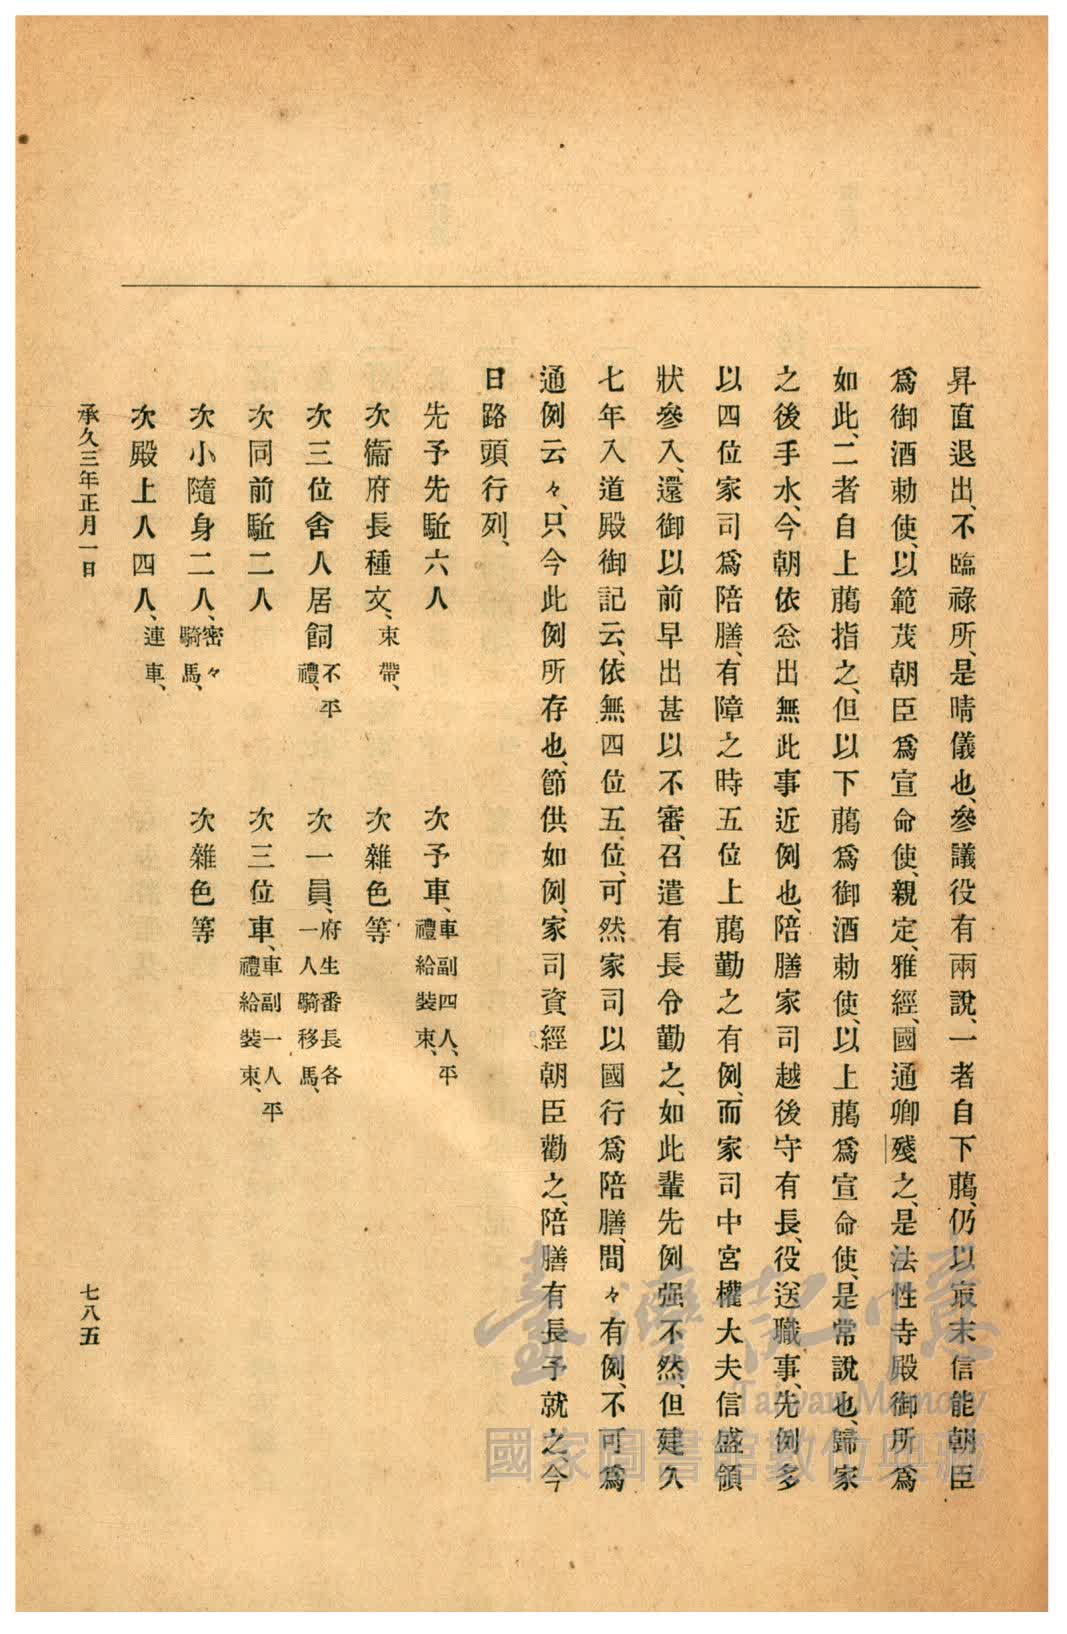 昇直退出、不臨祿所、是晴儀也、參議役有兩說、一者自下﨟、仍以㝡末信能朝臣
爲御酒勅使、以範茂朝臣爲宣命使、親定、雅經、國通卿殘之、是法性寺殿御所爲
如此、二者自上﨟指之、但以下﨟爲御酒勅使、以上﨟爲宣命使、是常說也、歸家
之後手水、今朝依忩出無此事近例也、陪膳家司越後守有長、役送職事、先例多
以四位家司爲陪膳、有障之時五位上﨟勤之有例、而家司中宮權大夫信盛領
狀參入、還御以前早出甚以不審、召遣有長令勤之、如此輩先例强不然、但建久
七年入道殿御記云、依無四位五位、可然家司以國行爲陪膳、間々有例、不可爲
通例云々、只今此例所存也、節供如例、家司資經朝臣勸之、陪膳有長予就之、今
日路頭行列、
先予先駈六人
次予車、車副四人、平禮給裝束、
次衞府長種文、束帶、
次雜色等
次三位舍人居飼不平禮、
次一員、府生番長各一人騎移馬、
次同前駈二人
次三位車、車副一人平禮給裝束、
次小隨身二人、密々騎馬、
次雜色等
次殿上人四人、連車、
承久三年正月一日
七八五
臺灣記憶
Taiwan Memory
國家圖書館數位典藏